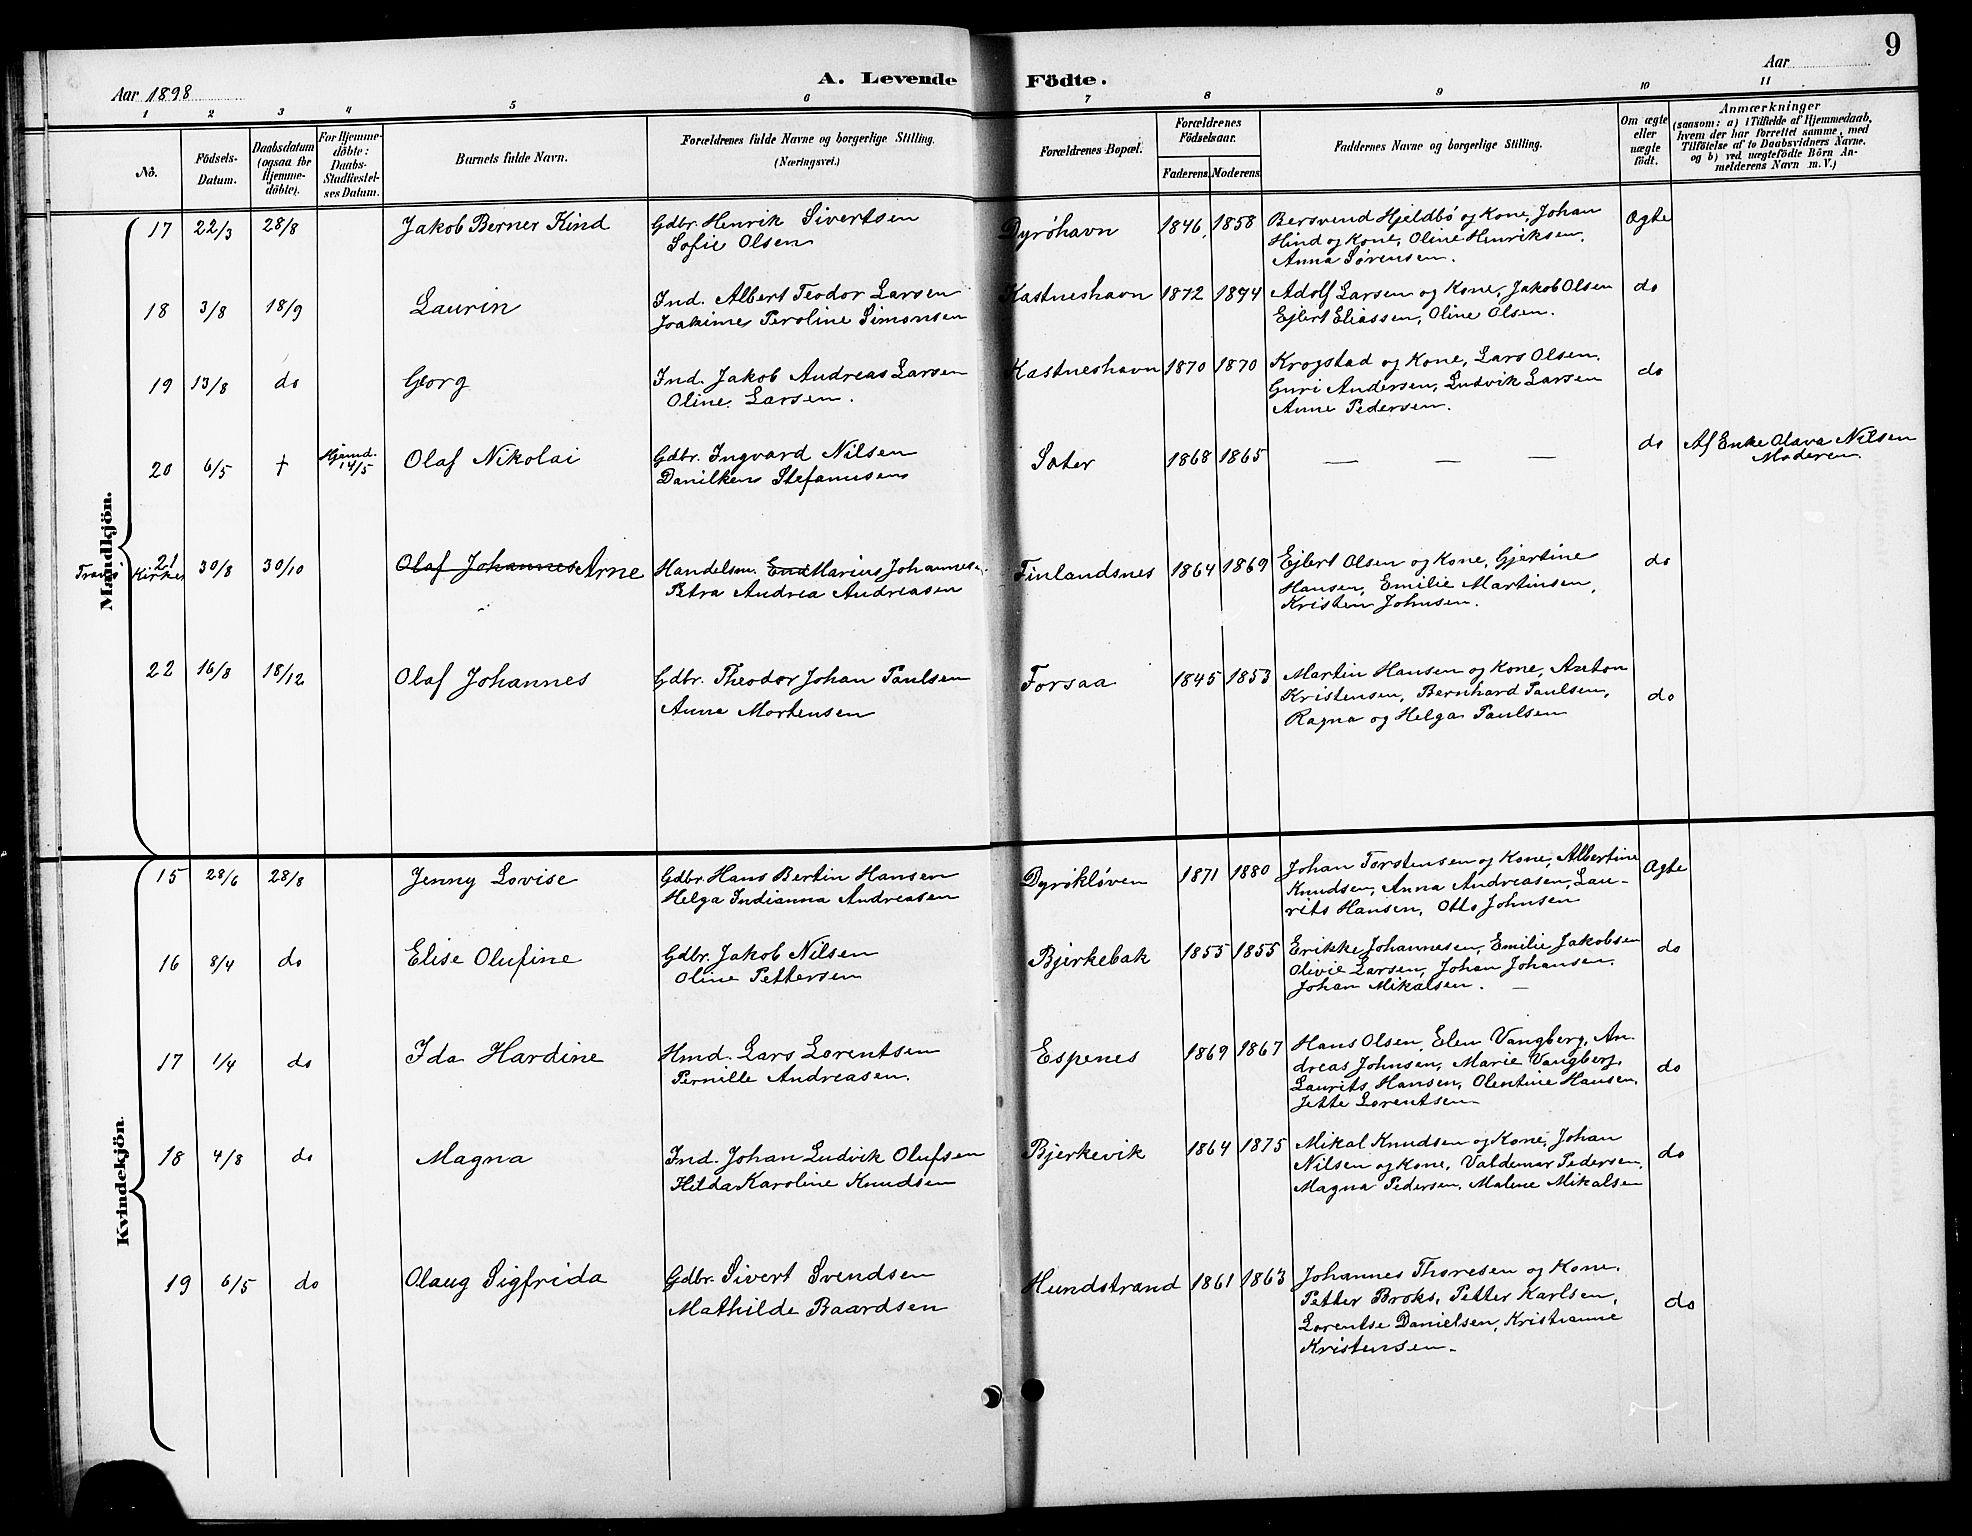 9
Aar 1898
A. Levende Födte.
Aar
1 2 3 4 5 6 7 8 9 10 11
No.
Födsels-Datum.
Daabsdatum (ogsaa for Hjemme-döbte).
For Hjemme-döbte: Daabs-Stadfæstel-ses Datum.
Barnets fulde Navn.
Forældrenes fulde Navne og borgerlige Stilling. (Næringsvei.)
Forældrenes Bopæl.
Forældrenes Födselsaar.
Faderens. Moderens.
Faddernes Navne og borgerlige Stilling.
Om ægte eller uægte födt.
Anmærkninger
(saasom: a) i Tilfælde af Hjemmedaab,
hvem der har forrettet samme, med
Tilföielse af to Daabsvidners Navne,
og b) ved uægtefödte Börn An-
melderens Navn m. V.)
Mandkjön.
17 22/3 28/8 Jakob Berner Kind Gdbr. Henrik Sivertsen Dyröhavn 1846 1858 Bersvend Hjeldbö og Kone, Johan Ægte
Sofie Olsen Hind og Kone, Oline Henriksen,
Anna Sørensen.
18 3/8 18/9 Laurin Ind. Albert Teodor Larsen Kastneshavn 1872 1874 Adolf Larsen og Kone, Jakob Olsen do
Joakime Peroline Simonsen Ejlert Eliassen, Oline Olsen.
19 13/8 do Georg Ind. Jakob Andreas Larsen Kastneshavn 1870 1870 Krogstad og Kone, Lars Olsen, do
Oline Larsen. Guri Andersen, Ludvik Larsen
Anne Pedersen.
20 6/5 + Hjemd. 14/5 Olaf Nikolai Gdbr. Ingvard Nilsen Sæter 1868 1865 — — — do Af Enke Olava Nilsen
Danilken Stefanusen Moderen.
21 Kirke 30/8 30/10 Olaf Johannes Arne Handelsm. Marius Johannesen Finlandsnes 1864 1869 Ejlert Olsen og Kone, Gjertine do
Petra Andrea Andreasen Hansen, Emilie Martinsen,
Kristen Johnsen.
22 16/8 18/12 Olaf Johannes Gdbr. Theodor Johan Paulsen Forsaa 1845 1853 Martin Hansen og Kone, Anton do
Anna Mortensen Kristensen, Bernhard Paulsen,
Ragna og Helga Paulsen
Kvindekjön.
15 28/6 28/8 Jenny Lovise Gdbr. Hans Bertin Hansen Dyrökløven 1871 1880 Johan Torstensen og Kone, Albertine Ægte
Helga Indianna Andreasen Knudsen, Anna Andreasen, Lau-
rits Hansen, Otto Johnsen
16 8/4 do Elise Olufine Gdbr. Jakob Nilsen Bjerkebak 1855 1855 Erikke Johannesen, Emilie Jakobsen do
Oline Pettersen Olivie Larsen, Johan Johansen,
Johan Mikalsen. —
17 1/4 do Ida Hardine Hmd. Lars Lorentsen Espenes 1869 1867 Hans Olsen, Elen Vangberg, An- do
Pernille Andreasen. dreas Johnsen, Marie Vangberg,
Laurits Hansen, Olentine Hansen,
Jette Lorentsen
18 4/8 do Magna Ind. Johan Ludvik Olufsen Bjerkevik 1864 1875 Mikal Knudsen og Kone, Johan do
Hilda Karoline Knudsen Nilsen og Kone, Valdemar Pedersen,
Magna Pedersen, Malene Mikalsen
19 6/5 do Olaug Sigfrida Gdbr. Sivert Svendsen Hundstrand 1861 1863 Johannes Thoresen og Kone, do
Mathilde Baardsen Petter Broks, Petter Karlsen,
Lorentse Danielsen, Kristianne
Kristensen.